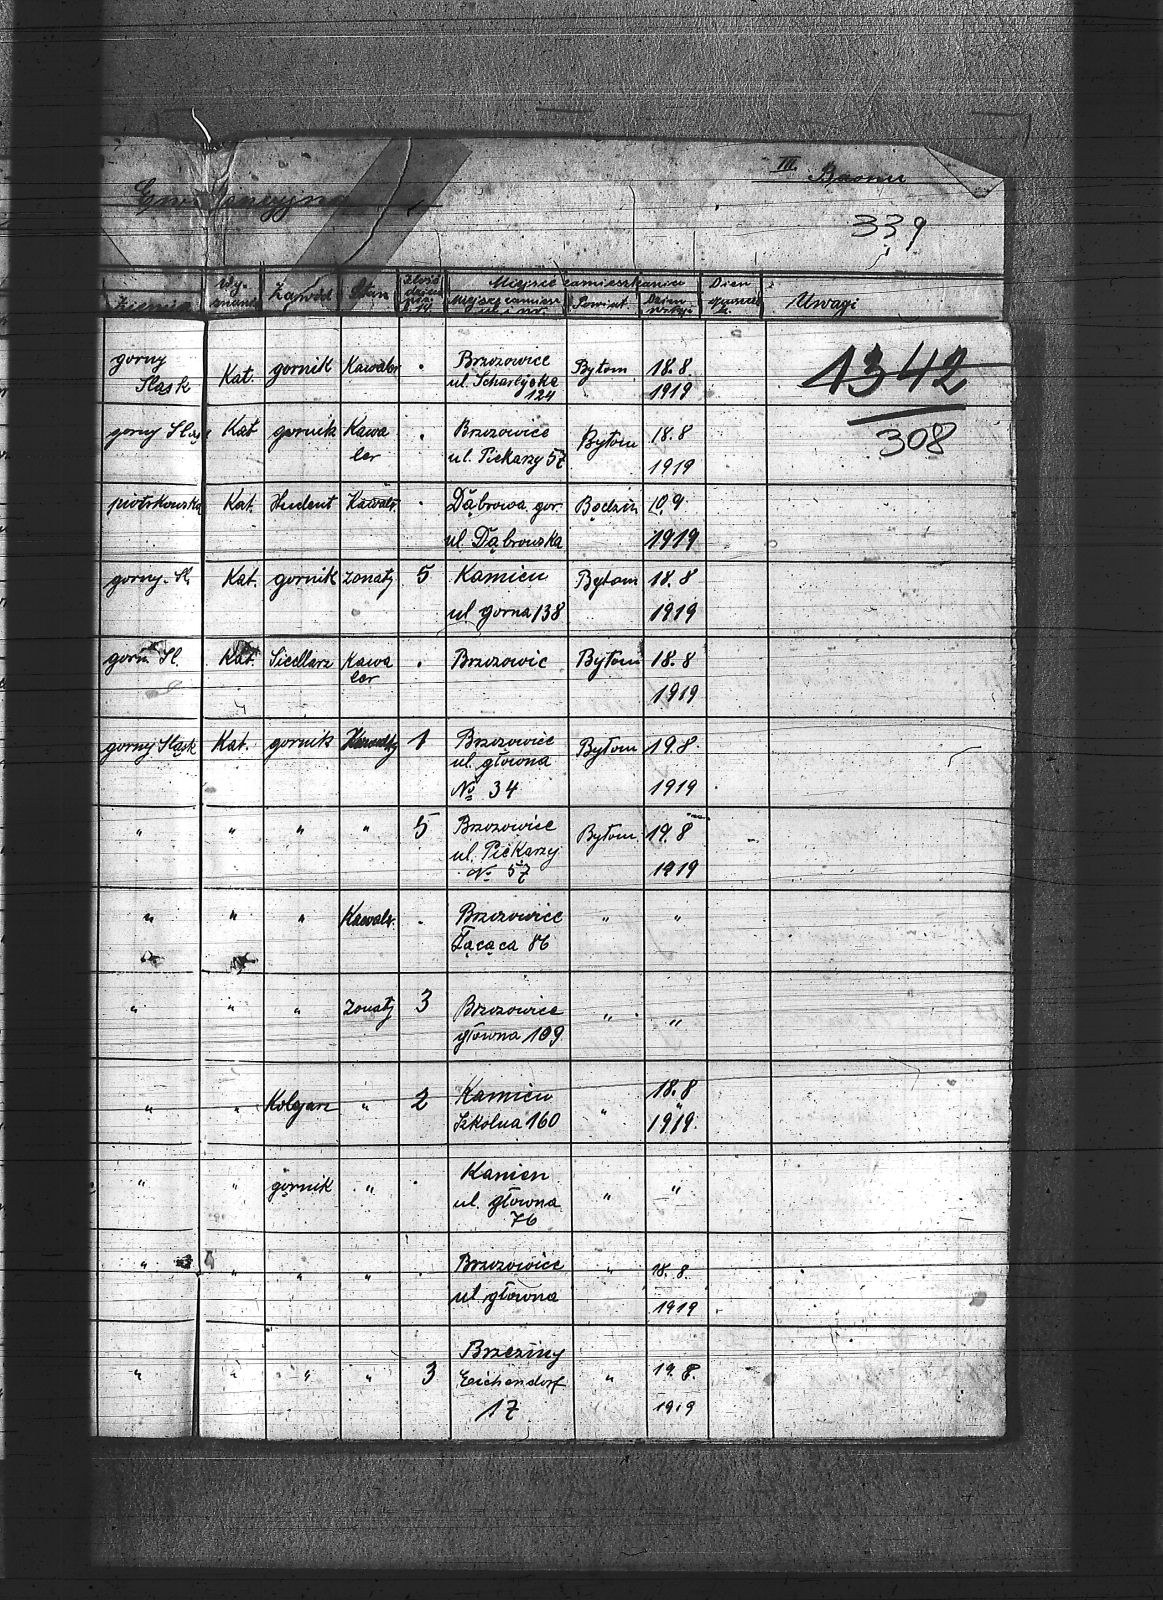 III. Baonu
339
Ziemia Wy-znanie Zawód Stan Ilość dzieci Miejsce zamieszkania Powiat Dzień Uwagi
1342
308
gorny Śląsk Kat. gornik Kawaler . Brzozowice ul. Scharlejska 124 Bytom 18.8 1919
gorny Śląsk Kat gornik Kawa ler . Brzozowice ul. Piekarzy 57 Bytom 18.8 1919
piotrkowska Kat. Student Kawaler . Dąbrowa gor. ul. Dąbrowska Będzin 10.9 1919
gorny. Śl. Kat. gornik zonaty 5 Kamien ul gorna 138 Bytom 18.8 1919
gorn. Śl. Kat. Siedlarz Kawa ler . Brzozowic Bytom 18.8 1919
gorny Śląsk Kat. gornik 1 Brzozowice ul. głowna No 34 Bytom 19.8 1919
" " " " 5 Brzozowice ul. Piekarzy No 57 Bytom 19.8 1919
" " " Kawaler . Brzozowice Łącąca 86 " "
" " " zonaty 3 Brzozowice głowna 109 " "
" " Kolejarz " 2 Kamien Szkolna 160 " 18.8 1919
" " gornik " . Kamien ul. głowna 76 " "
" " " " . Brzozowice ul głowna " 18.8. 1919
" " " " 3 Brzeziny Eichendorf 17 " 19.8. 1919